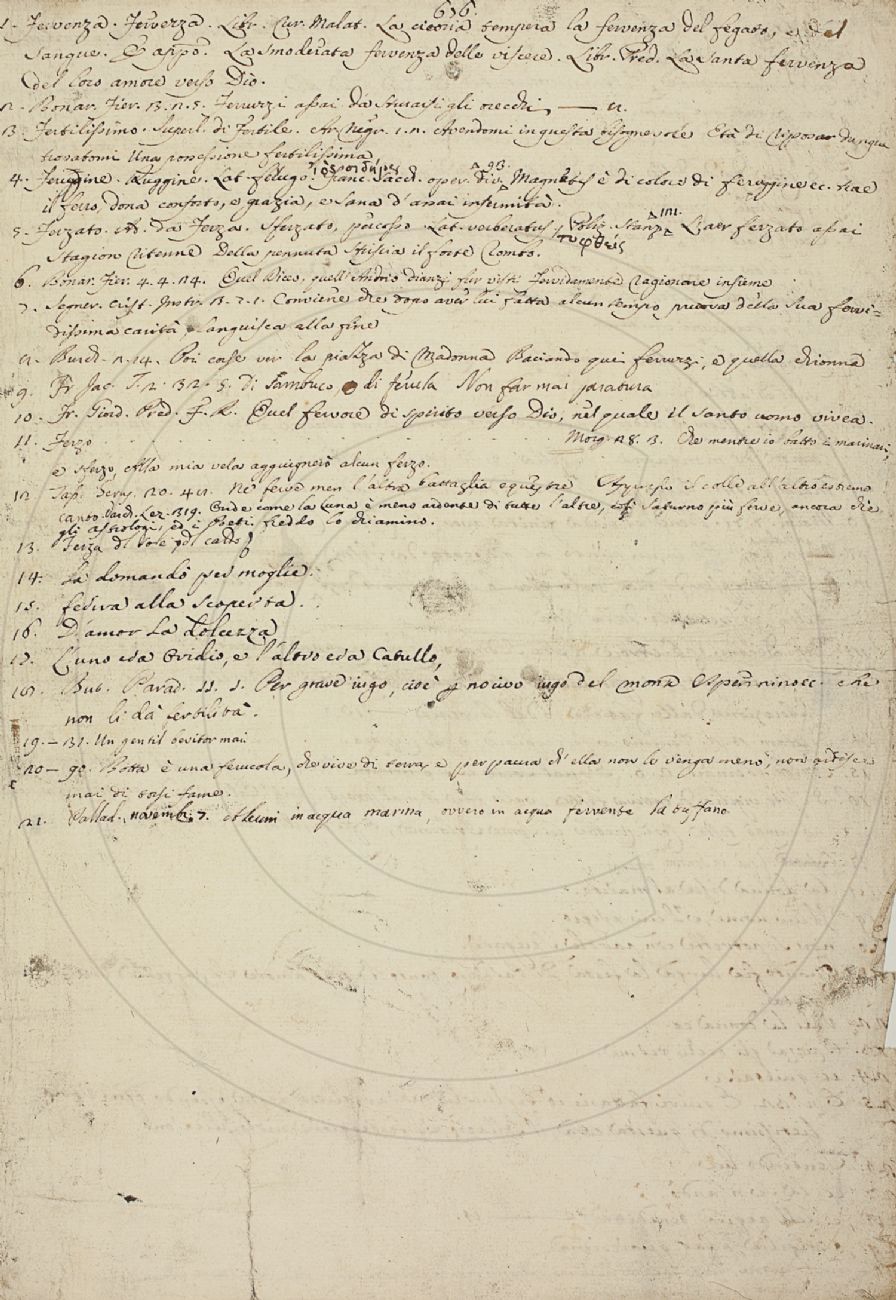 636.
1. Fervenza. Ferverza. Libr. Cur. Malat. La cicoria tempera la fervenza del fegato, e del
sangue. E appo. La smoderata fervenza delle viscere. Libr. Pred. La santa fervenza
del loro amore verso Dio.
2. Bonar. Fier. 3. 2. 5. Ferruzzi assai da sturarsi gli orecchi
3. Fertilissimo. Superl. di Fertile. Avendomi in questa bisognevole Età di riposar dunque
trovatomi una possessione fertilissima
4. Ferugine. Ruggine. Lat. Franc. Sacch. oper. div. 93. Magnetes è di colore di ferugine ec. trae
il ferro, dona conforto, e grazia, e sana d'assai infermità.
5. Ferzato. da Ferza. Sferzato, percosso. Lat. verberatus, τυφθείς Poliz. Stanz. L'aer ferzato assai
stagion ritenne Della pennuta striscia il forte rombo.
6. Bonar. Fier. 4. 4. 24. Quel Dico, quell' Andrio dianzi fur visti Fervidamente ragionare insieme
7. Segner. Crist. Instr. 3. 7. 1. Conviene che dopo aver lui fatta alcun tempo pruova della sua fervi=
dissima carità languisca alla fine
8. Burch. 2. 14. Poi corse ver la piazza di Madonna Baciando quei ferruzzi, e quella chionna
9. Fr. Jac. T. 2. 32. 5. di sambuco di ferula Non far mai paratura
10. Fr. Giord. Pred. F. R. Quel fervore di spirito verso Dio, nel quale il Santo uomo vivea.
11. Ferzo . . . . . Morg. 28. 3. che mentre io batto i marinai,
e sferzo, Alla mia vela aggiugnerò alcun ferzo.
12. Tass. Gerus. 20. 41. Nè ferve men l'altra battaglia equestre Appresso il colle all'altro estremo
canto. Vard. Lez. 319. Onde come la luna è meno ardente di tutte l'altre, così Saturno più ferve, ancora che
gli astrologi, ed i Poeti freddo lo chiamino.
13. Ferza di Sole
14. La domandò per moglie.
15. fediva alla scoperta.
16. D'amor la dolcezza
17. L'uno era Ovidio, e l'altro era Catullo,
18. But. Parad. 11. 1. Per grave iugo, cioè p nocivo iugo del monte Apenninoec. che
non li dà fertilità.
19. — 31. Un gentil bevitor mai
20 — 90. Botta è una ferucola, che vive di terra, e per paura ch'ella non le venga meno, non ardisce
mai di torsi fame.
21. Pallad. novemb. 7. Alcuni in acqua marina, ovvero in acqua fervente la tuffano